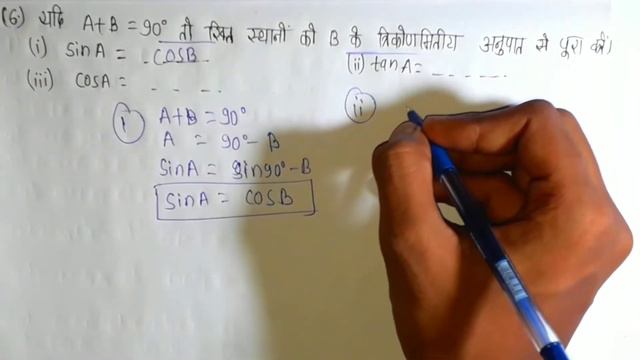 (6) यदि A+B = 90° तो रिक्त स्थानों को B के त्रिकोणमितीय अनुपात से पूरा करें।
(i) sinA = COSB (ii) tanA = _ _ _ _ _.
(iii) COSA = _ _ _ .
(i) A+B = 90°
A = 90° - B
sinA = sin90° - B
sinA = COSB
(ii)